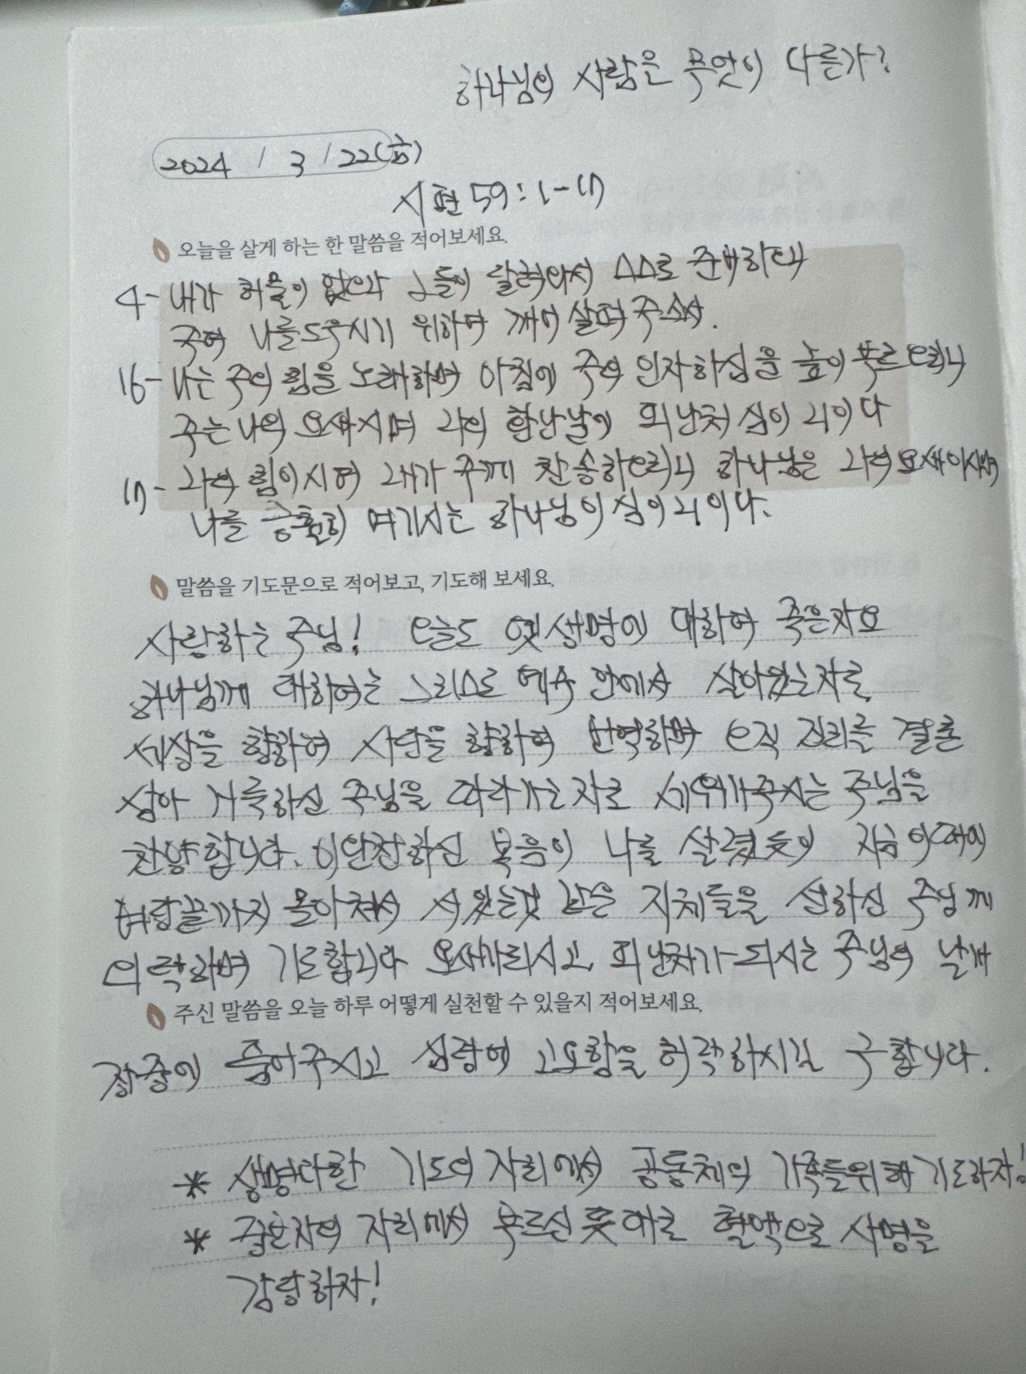 하나님의 사람은 무엇이 다른가?
2024 / 3 / 22(금)
시편 59:1-17
오늘을 살게 하는 한 말씀을 적어보세요.
4- 내가 허물이 없으나 그들이 달려와서 스스로 준비하오니
주여 나를 도우시기 위하여 깨어 살펴 주소서.
16- 나는 주의 힘을 노래하며 아침에 주의 인자하심을 높이 부르오리니
주는 나의 요새시며 나의 환난날에 피난처심이니이다
17- 나의 힘이시여 내가 주께 찬송하오리니 하나님은 나의 요새이시며
나를 긍휼히 여기시는 하나님이심이니이다.
말씀을 기도문으로 적어보고, 기도해 보세요.
사랑하는 주님! 오늘도 옛생명에 대하여 죽은자요
하나님께 대하여는 그리스도 예수 안에서 살아있는자로
세상을 향하여 사단을 향하여 반역하며 오직 진리를 결론
삼아 거룩하신 주님을 따라가는 자로 세워가주시는 주님을
찬양합니다. 이 완전하신 복음이 나를 살렸듯이 지금 이때에
벼랑끝까지 몰아쳐서 서있는것 같은 지체들을 선하신 주님께
의탁하며 기도합니다 요새가 되시고 피난처가 되시는 주님의 날개
주신 말씀을 오늘 하루 어떻게 실천할 수 있을지 적어보세요.
품어주시고 심령에 고요함을 허락하시길 구합니다.
* 생명다한 기도의 자리에서 공동체의 가족들위해 기도하자!
* 자리에서 부르신 뜻대로 혈맥으로 사명을
감당하자!